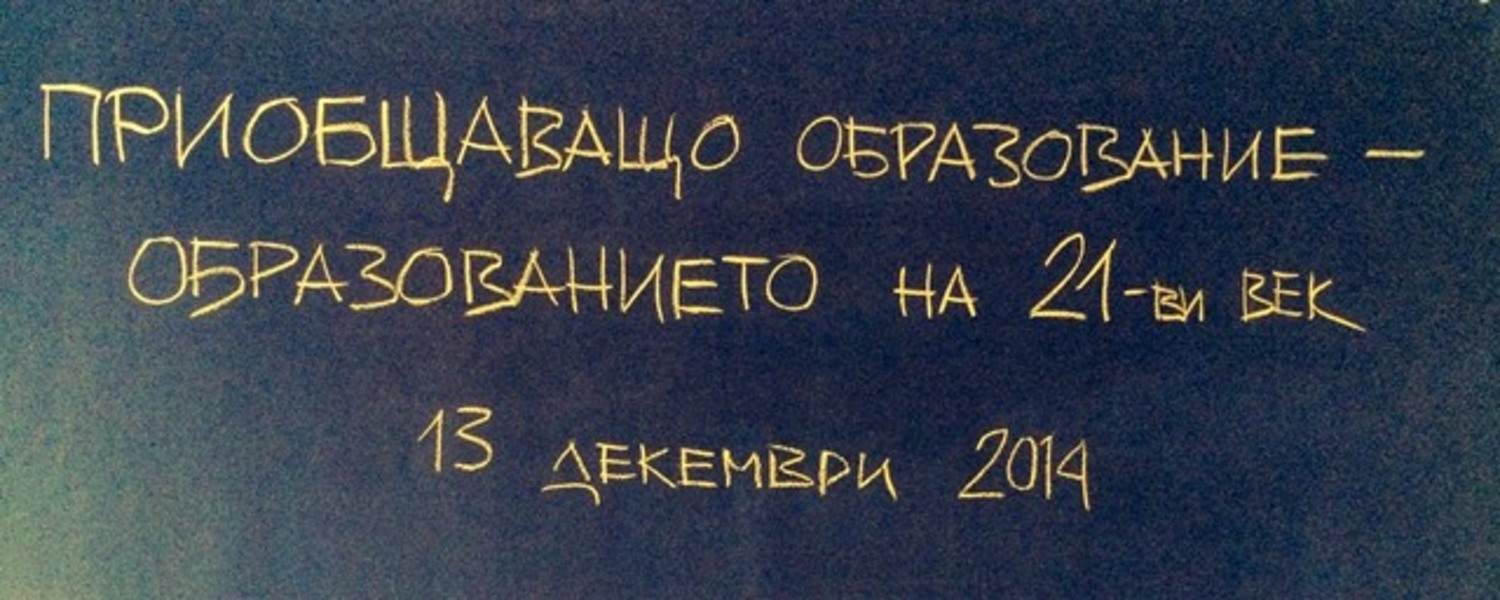 ПРИОБЩАВАЩО ОБРАЗОВАНИЕ –
ОБРАЗОВАНИЕТО НА 21-ви ВЕК
13 ДЕКЕМВРИ 2014